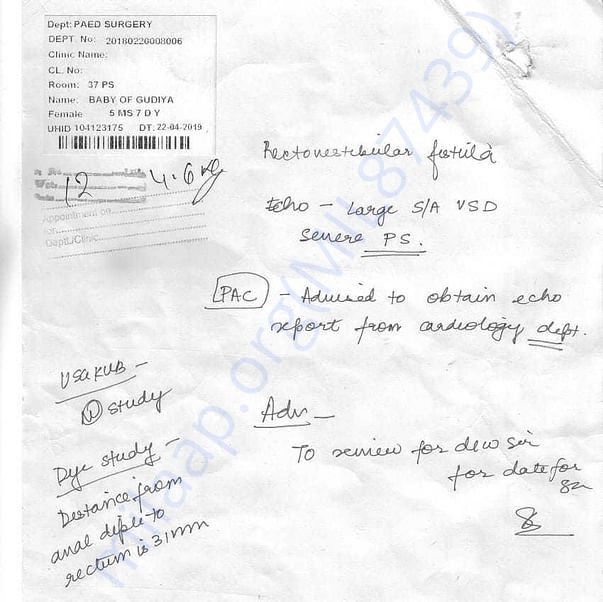 Dept: PAED SURGERY
DEPT. No: 20180220008006
Clinic Name:
CL. No:
Room: 37 PS
Name: BABY OF GUDIYA
Female 5 MS 7 D Y
UHID 104123175 DT: 22-04-2019
12 4.6 kg
Appointment on
for
Deptt./Clinic
Rectovestibular fistula
Echo - Large S/A VSD
Severe PS.
PAC - Advised to obtain echo
report from cardiology dept.
USG KUB -
N study
Dye study -
Distance from
anal diple to
rectum is 31mm
Adv -
To review for
for date for
milaap.org(MILL87439)